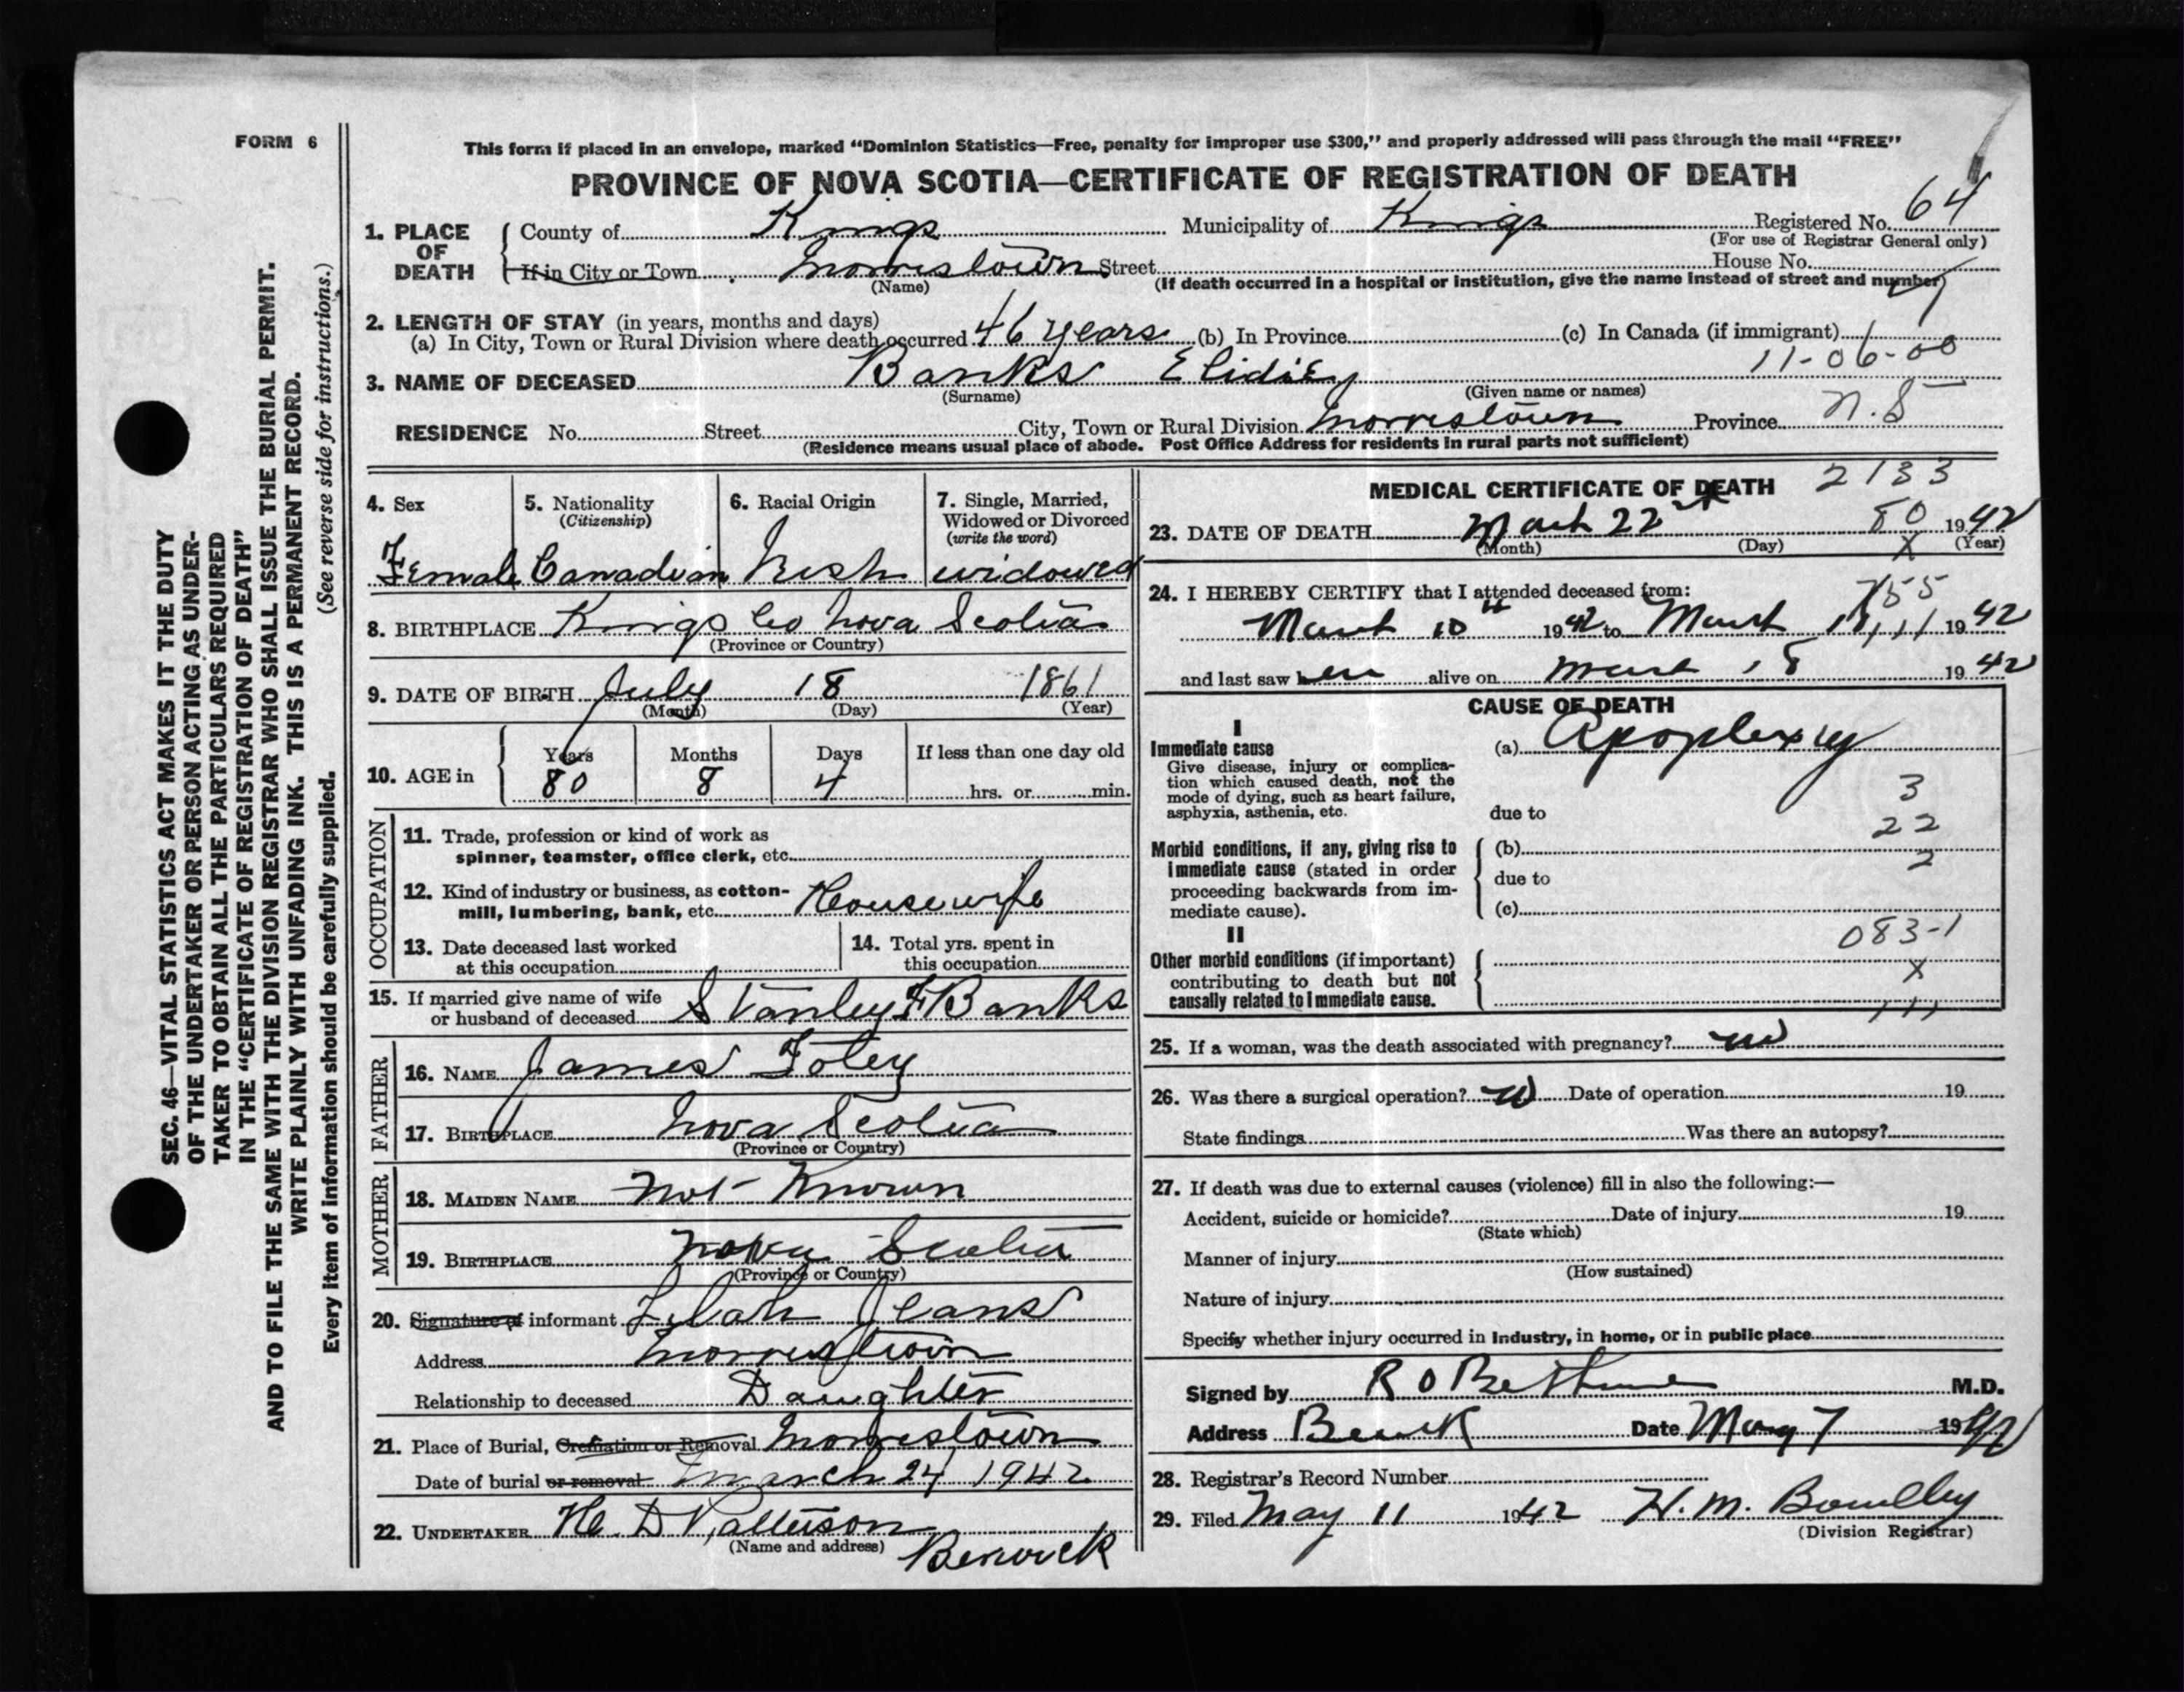 FORM 6
This form if placed in an envelope, marked "Dominion Statistics—Free, penalty for improper use $300," and properly addressed will pass through the mail "FREE"
PROVINCE OF NOVA SCOTIA—CERTIFICATE OF REGISTRATION OF DEATH
1. PLACE OF DEATH County of Kings Municipality of Kings Registered No. 64
(For use of Registrar General only)
If in City or Town Morristown Street House No.
(Name) (If death occurred in a hospital or institution, give the name instead of street and number)
2. LENGTH OF STAY (in years, months and days)
(a) In City, Town or Rural Division where death occurred 46 years (b) In Province (c) In Canada (if immigrant)
11-06-00
3. NAME OF DECEASED Banks
(Surname) (Given name or names)
RESIDENCE No. Street City, Town or Rural Division Morristown Province N.S
(Residence means usual place of abode. Post Office Address for residents in rural parts not sufficient)
4. Sex
Female
5. Nationality
(Citizenship)
Canadian
6. Racial Origin
Irish
7. Single, Married,
Widowed or Divorced
(write the word)
widowed
8. BIRTHPLACE Kings Co Nova Scotia
(Province or Country)
9. DATE OF BIRTH July 18 1861
(Month) (Day) (Year)
10. AGE in
Years Months Days If less than one day old
80 8 4 hrs. or min.
OCCUPATION
11. Trade, profession or kind of work as
spinner, teamster, office clerk, etc.
12. Kind of industry or business, as cotton-
mill, lumbering, bank, etc. Housewife
13. Date deceased last worked
at this occupation
14. Total yrs. spent in
this occupation
15. If married give name of wife
or husband of deceased Stanley F Banks
FATHER
16. NAME James Foley
17. BIRTHPLACE Nova Scotia
(Province or Country)
MOTHER
18. MAIDEN NAME Not Known
19. BIRTHPLACE Nova Scotia
(Province or Country)
20. Signature of informant Jeans
Address Morristown
Relationship to deceased Daughter
21. Place of Burial, Cremation or Removal Morristown
Date of burial or removal March 24 1942
22. UNDERTAKER H. D Patterson
(Name and address) Berwick
MEDICAL CERTIFICATE OF DEATH 2133
80
23. DATE OF DEATH March 22 1942
(Month) (Day) X (Year)
24. I HEREBY CERTIFY that I attended deceased from:
March 10th 1942 to March 1942
and last saw her alive on March 18 1942
CAUSE OF DEATH
I
Immediate cause (a) Apoplexy
Give disease, injury or complica-
tion which caused death, not the
mode of dying, such as heart failure,
asphyxia, asthenia, etc.
due to
3
22
2
Morbid conditions, if any, giving rise to
immediate cause (stated in order
proceeding backwards from im-
mediate cause).
(b)
due to
(c)
II
Other morbid conditions (if important)
contributing to death but not
causally related to immediate cause.
083-1
X
111
25. If a woman, was the death associated with pregnancy? no
26. Was there a surgical operation? no Date of operation 19
State findings Was there an autopsy?
27. If death was due to external causes (violence) fill in also the following:—
Accident, suicide or homicide? Date of injury 19
(State which)
Manner of injury
(How sustained)
Nature of injury
Specify whether injury occurred in industry, in home, or in public place
Signed by R O Bethune M.D.
Address Berwick Date May 7 1942
28. Registrar's Record Number
29. Filed May 11 1942 H. M.
(Division Registrar)
SEC. 46—VITAL STATISTICS ACT MAKES IT THE DUTY
OF THE UNDERTAKER OR PERSON ACTING AS UNDER-
TAKER TO OBTAIN ALL THE PARTICULARS REQUIRED
IN THE "CERTIFICATE OF REGISTRATION OF DEATH"
AND TO FILE THE SAME WITH THE DIVISION REGISTRAR WHO SHALL ISSUE THE BURIAL PERMIT.
WRITE PLAINLY WITH UNFADING INK. THIS IS A PERMANENT RECORD.
Every item of information should be carefully supplied. (See reverse side for instructions.)